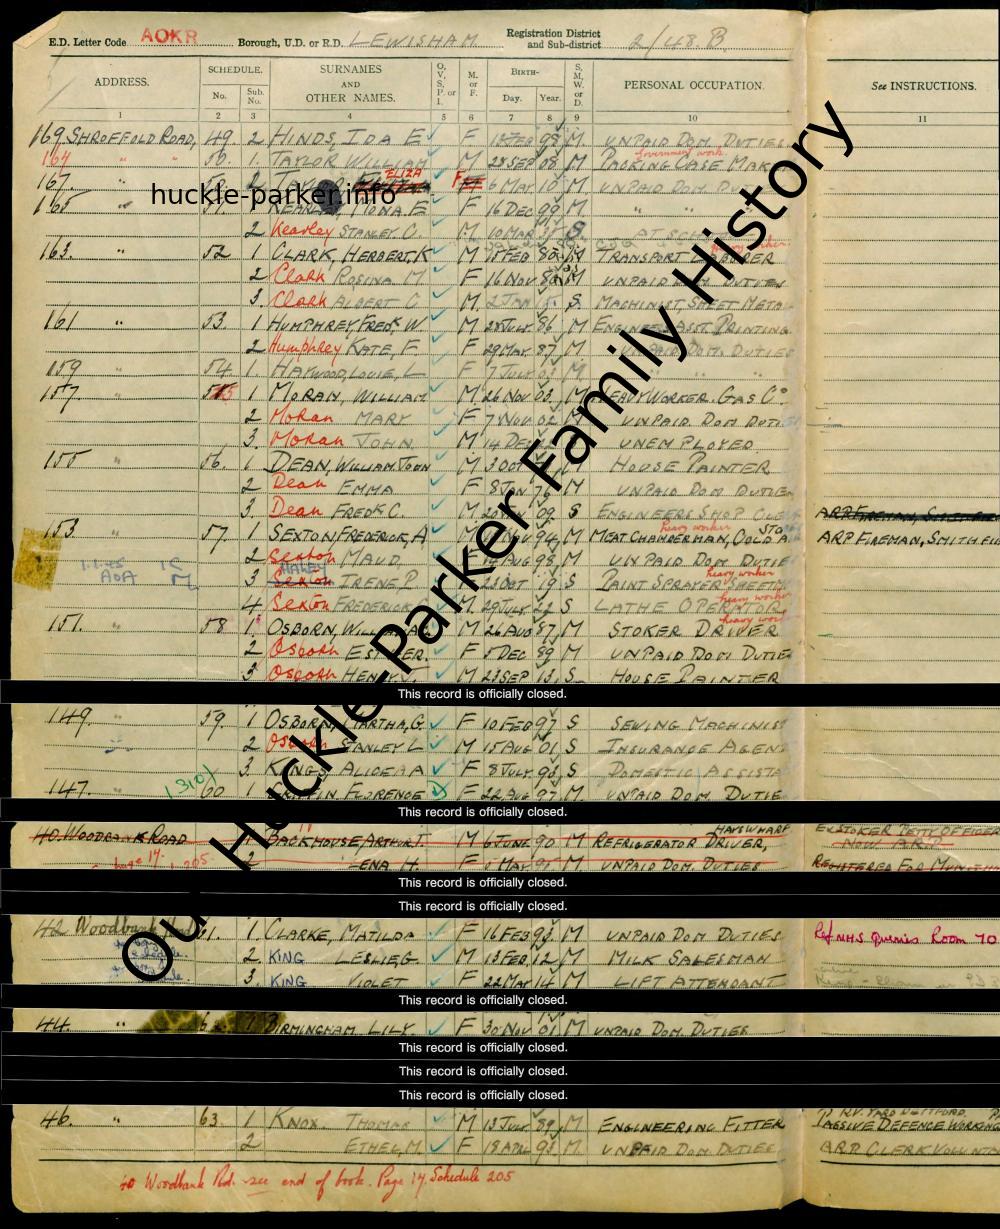 E.D. Letter Code AOKR Borough, U.D. or R.D. LEWISHAM Registration District and Sub-district 2/48.B.
ADDRESS. SCHEDULE. No. Sub. No. SURNAMES AND OTHER NAMES. O, V, S, P, or I. M. or F. BIRTH- Day. Year. S, M, W, or D. PERSONAL OCCUPATION. See INSTRUCTIONS.
1 2 3 4 5 6 7 8 9 10 11
169 SHROFFOLD ROAD, 49. 2 HINDS, IDA E F FEB 98 M. UNPAID DOM. DUTIES.
164 " " 50. 1. TAYLOR WILLIAM M 28 SEP 08 M. PACKING CASE MAK
Government work
167. " 2 ELIZA F 6 MAR 10 M UNPAID DOM
huckle-parker.info
165 " MONA E F 16 DEC 99 M. " "
2 Kearley STANLEY. C. M. 10 MAR S AT SCH
163. " 52 1 CLARK, HERBERT, K M FEB 80 M TRANSPORT LABOURER
heavy worker
2 Clark ROSINA M F 16 NOV M UNPAID DOM DUTIES
3. Clark ALBERT C M. 2 JAN S. MACHINIST, SHEET META
161 " 53. 1 HUMPHREY FREDK W. M 28 JULY 86, M ENGINEERS ASST. PRINTING
2 Humphrey KATE, F F 29 MAY 87 M UNPAID DOM. DUTIES
159 " 54 1. HAYWOOD, LOUIE, L F 7 JULY 03 M " "
157. " 55 1 MORAN, WILLIAM M 26 NOV 03. M HEAVY WORKER. GAS Co
2 Moran MARY F 7 NOV 02 M UNPAID DOM DUTI
3. Moran JOHN M 14 DEC UNEMPLOYED
155 " 56. 1 DEAN, WILLIAM JOHN M 3 OCT M HOUSE PAINTER
2 Dean EMMA F 8 JAN 76 M UNPAID DOM DUTIES
3. Dean FREDK C. M 09 S ENGINEERS SHOP CLE
153. " 57. 1 SEXTON, FREDERICK, A M NOV 94, M MEAT CHAMBERMAN, COLD STO
heavy worker
ARP FIREMAN, SMITHFIE
2 Sexton MAUD, F AUG 98 M UNPAID DOM DUTIE
3 HAWES Sexton IRENE P F 23 OCT 19 S PAINT SPRAYER SHEET M
heavy worker
4 Sexton FREDERICK M. 29 JULY 22 S LATHE OPERATOR
heavy worker
151. " 58 1. OSBORN, WILLIAM M 26 AUG 87, M STOKER DRIVER
heavy work
2 Osborn ESTHER. F DEC 89 M UNPAID DOM. DUTIE
3 Osborn HENRY M 23 SEP 13, S HOUSE PAINTER
This record is officially closed.
149. " 59. 1 OSBORN, MARTHA, G. F 10 FEB 97 S SEWING MACHINIST
2 Osborn STANLEY L M 15 AUG 01 S INSURANCE AGEN
3. KING, ALICE A A F 8 JULY 93, S DOMESTIC ASSISTA
147. " 60 1 FLORENCE F 22 AUG 97 M. UNPAID DOM. DUTIE
This record is officially closed.
40 WOODBANK ROAD 1 BACKHOUSE, ARTHUR T. M 6 JUNE 90 M REFRIGERATOR DRIVER, HAYS WHARF EX STOKER PETTY OFFICER NOW ARP
2 ENA H. F MAY 95 M UNPAID DOM. DUTIES REGISTERED FOR
This record is officially closed.
This record is officially closed.
42 Woodbank Road 61. 1. CLARKE, MATILDA F 16 FEB 93 M UNPAID DOM DUTIES Ref NHS Queries Room 70
2. KING LESLIE, G M 13 FEB, 12 M MILK SALESMAN
3. KING VIOLET F 22 MAY 14 M LIFT ATTENDANT
This record is officially closed.
44. " BIRMINGHAM LILY F 30 NOV 01 M UNPAID DOM. DUTIES
This record is officially closed.
This record is officially closed.
This record is officially closed.
46. " 63. 1 KNOX. THOMAS M 13 JULY 89, M ENGINEERING FITTER
PASSIVE DEFENCE WORKING
2 ETHEL, M F 18 APR 93 M. UNPAID DOM. DUTIES ARP CLERK VOLUNTA
40 Woodbank Rd. see end of book. Page 14. Schedule 205
Our Huckle-Parker Family History